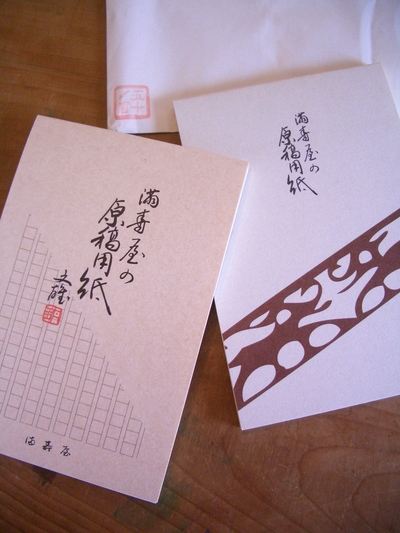 満寿屋の
原稿用紙
文雄
満寿屋
満寿屋の
原稿用紙
五十